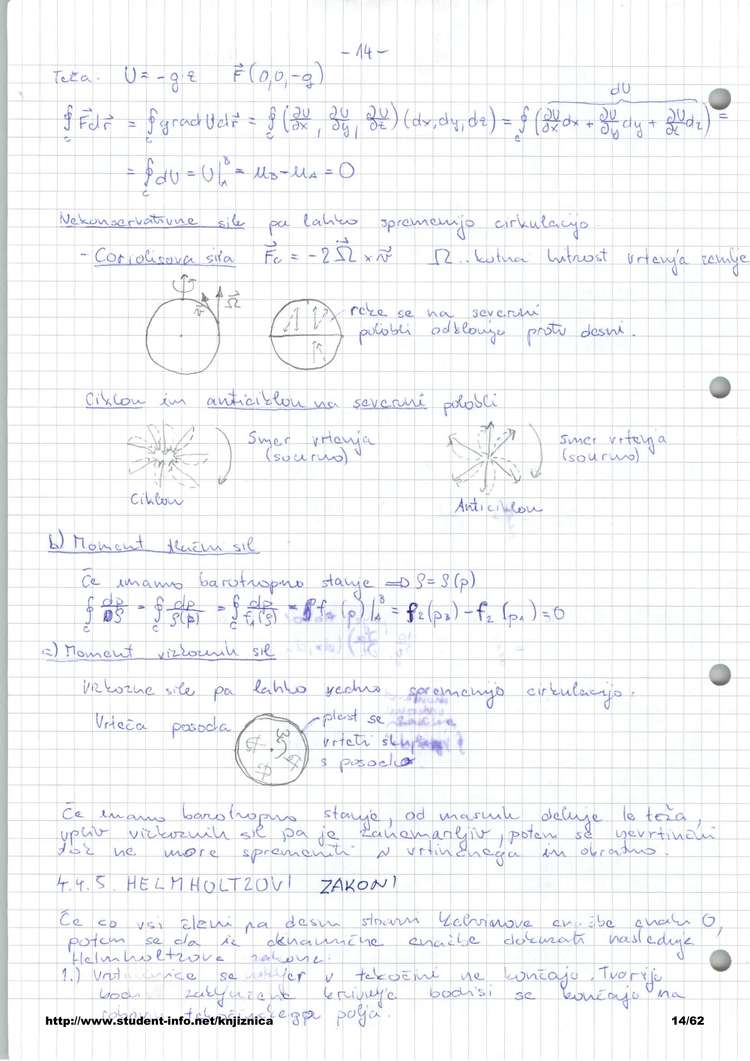 - 14 -
Teža. U = -g z   F⃗ (0,0,-g)
∮_c F⃗ dr⃗ = ∮_c grad U dr⃗ = ∮_c (∂U/∂x, ∂U/∂y, ∂U/∂z) (dx, dy, dz) = ∮_c (∂U/∂x dx + ∂U/∂y dy + ∂U/∂z dz) =
dU
= ∮_c dU = U|_A^B = u_B - u_A = 0
Nekonservativne sile pa lahko spremenijo cirkulacijo.
- Coriolisova sila   F⃗c = -2 Ω⃗ × v⃗   Ω.. kotna hitrost vrtenja zemlje
v⃗ Ω⃗ reke se na severni
polobli odklanja proti desni.
Ciklon in anticiklon na severni polobli
Smer vrtenja
(sourno)
Ciklon
Smer vrtenja
(sourno)
Anticiklon
b) Moment tlačnih sil
Če imamo barotropno stanje ⇒ ρ = ρ(p)
∮_c dp/ρ = ∮_c dp/ρ(p) = ∮_c dp/f₁(p) = f₂(p)|_A^B = f₂(p_B) - f₂(p_A) = 0
c) Moment viskoznih sil
Vizkozne sile pa lahko vedno spremenijo cirkulacijo.
Vrteča posoda
plast se
vrteti skupaj
s posodo
Če imamo barotropno stanje, od masnih deluje le teža,
vpliv vizkoznih sil pa je zanemarljiv, potem se nevrtinčni
tok ne more spremeniti v vrtinčnega in obratno.
4.4.5. HELMHOLTZOVI ZAKONI
Če so vsi členi na desni strani Kelvinove enačbe enaki 0,
potem se da iz dinamične enačbe dokazati naslednje
Helmholtzove zakone:
1.) se v tekočini ne končajo. Tvorijo
bodisi zaključene krivulje bodisi se končajo na
robovih tekočinskega polja.
http://www.student-info.net/knjiznica
14/62